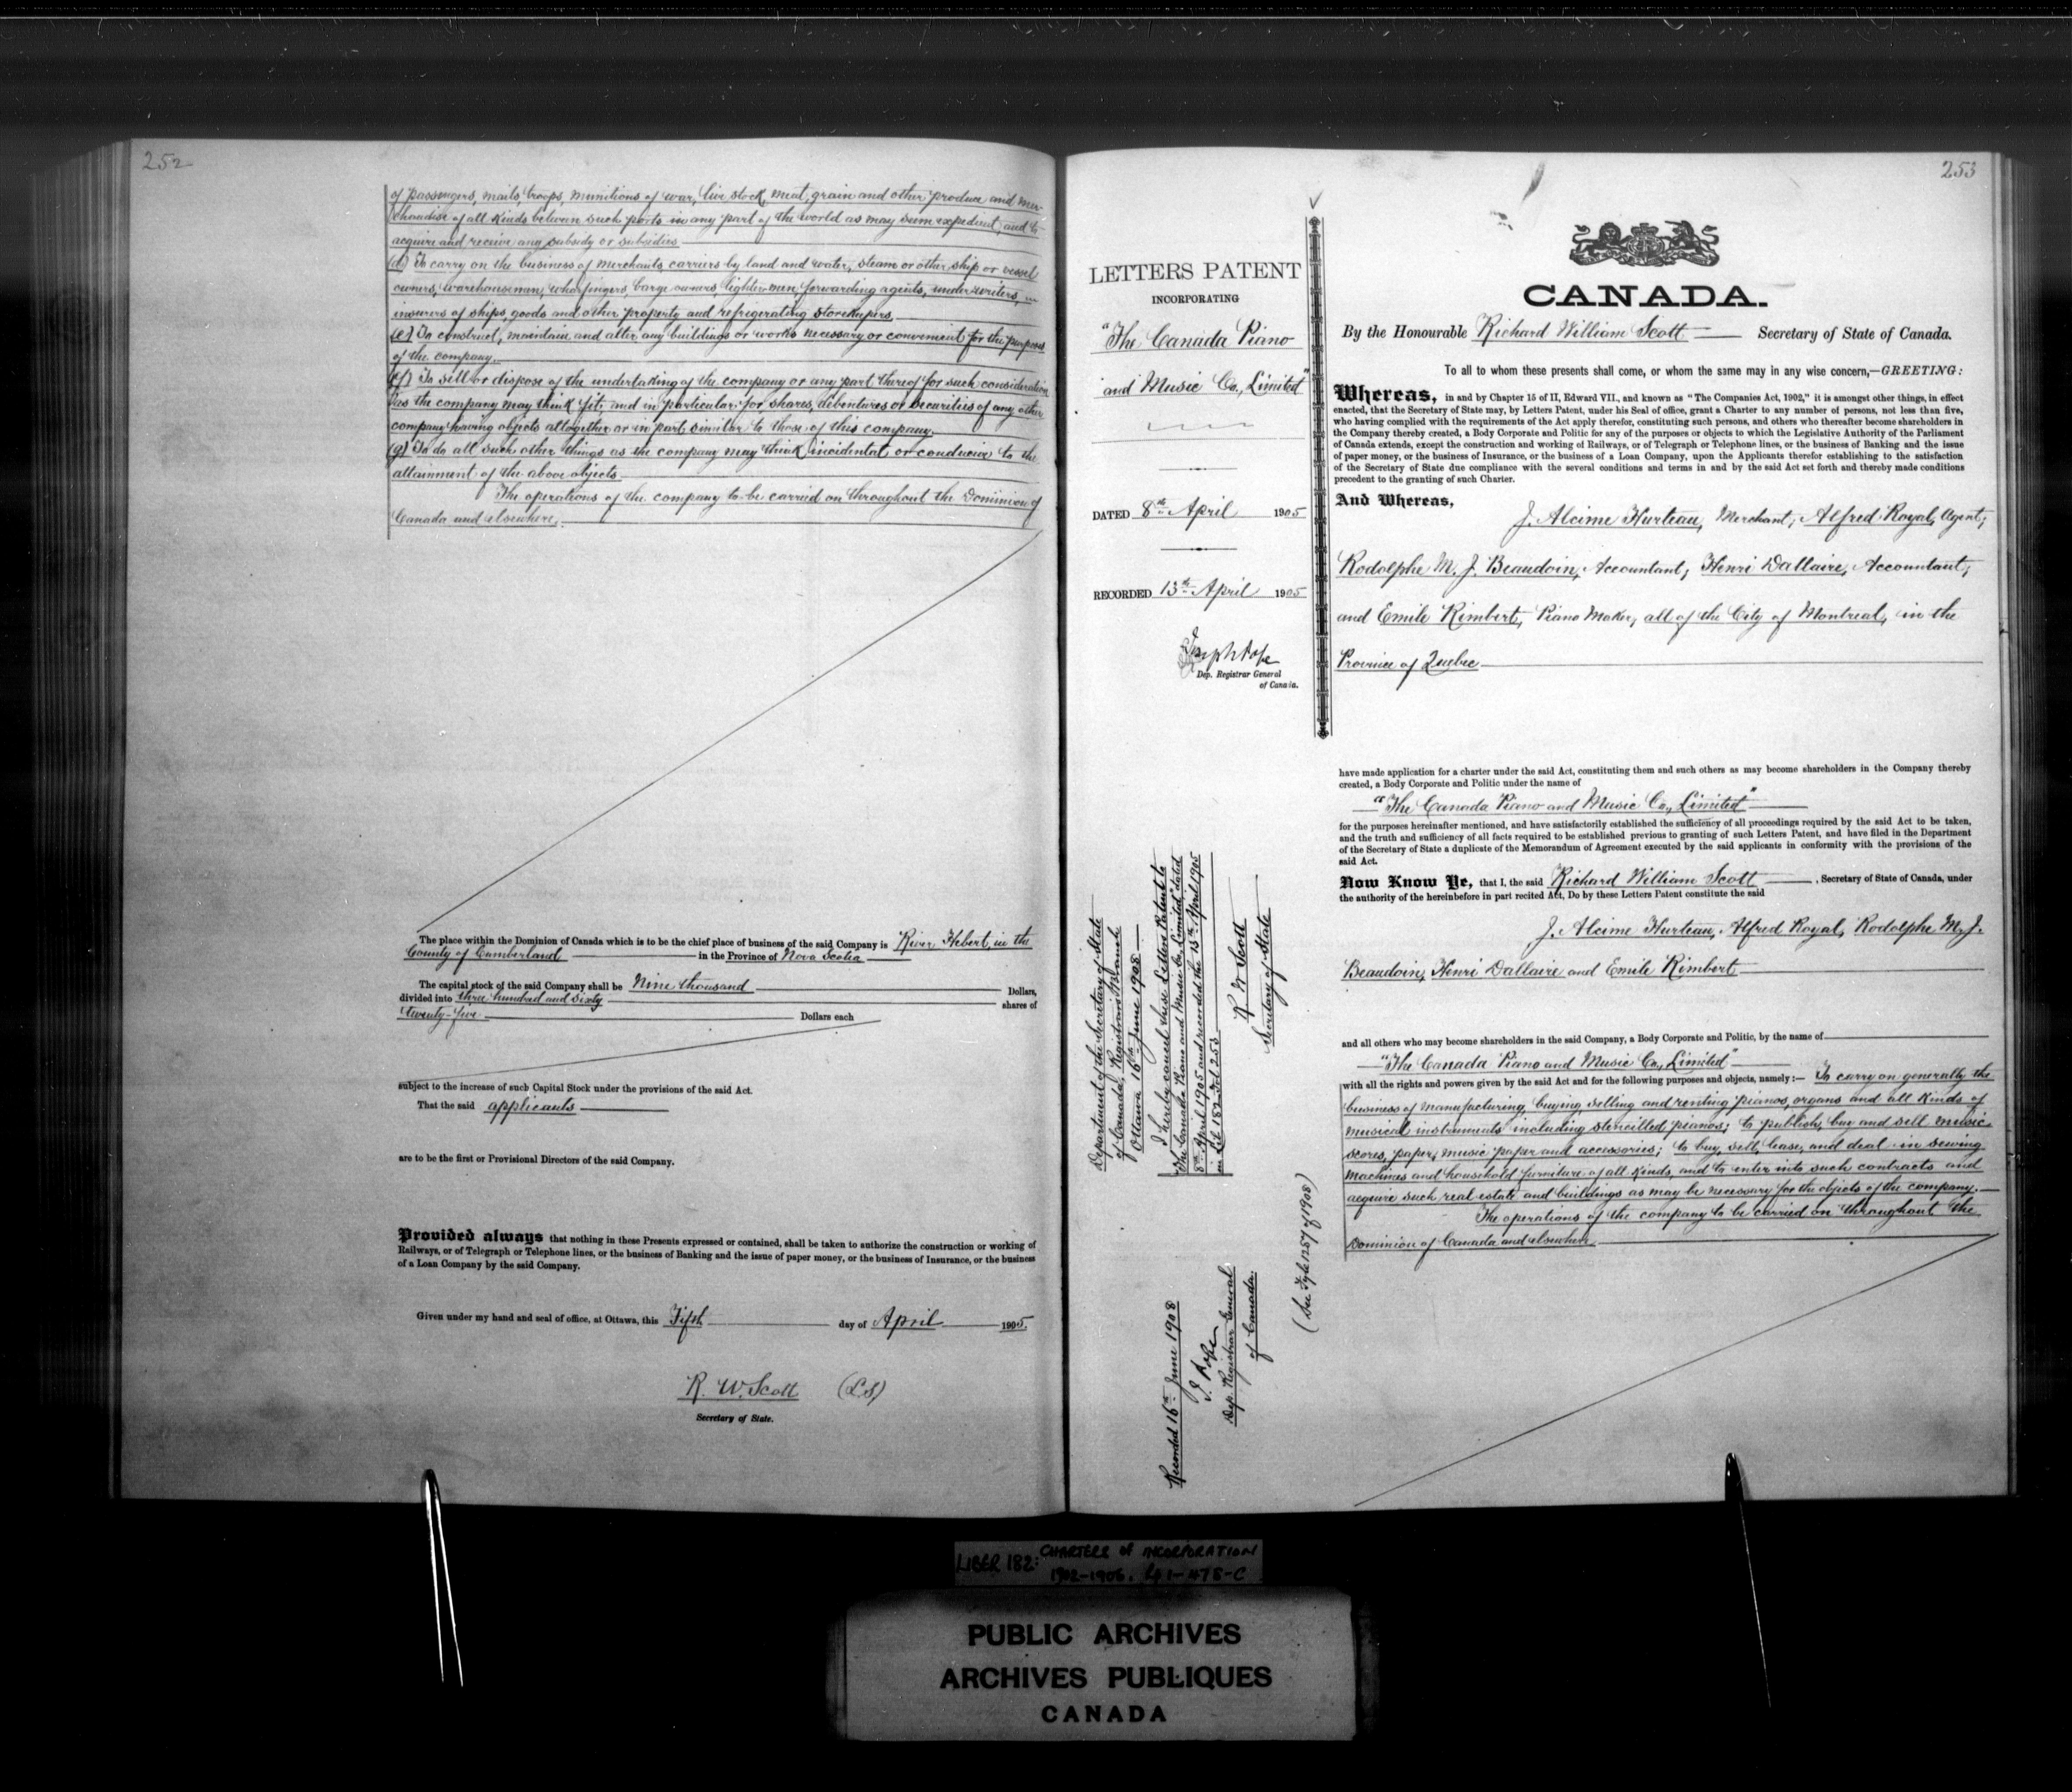 252
of passengers, mails, troops, munitions of war, live stock, meat, grain and other produce and mer-
chandise of all kinds between such ports in any part of the world as may seem expedient, and to
acquire and receive any subsidy or subsidies
(d) To carry on the business of merchants carriers by land and water, steam or other ship or vessel
owners, warehousemen, wharfingers, barge owners, lighter-men, forwarding agents, underwriters,
insurers of ships, goods and other property and refrigerating storekeepers.
(e) To construct, maintain and alter any buildings or works necessary or convenient for the purposes
of the company.
(f) To sell or dispose of the undertaking of the company or any part thereof for such consideration
as the company may think fit, and in particular for shares, debentures or securities of any other
company having objects altogether or in part similar to those of this company.
(g) To do all such other things as the company may think incidental or conducive to the
attainment of the above objects.
The operations of the company to be carried on throughout the Dominion of
Canada and elsewhere.
The place within the Dominion of Canada which is to be the chief place of business of the said Company is River Hebert, in the
County of Cumberland in the Province of Nova Scotia
The capital stock of the said Company shall be Nine thousand Dollars,
divided into three hundred and sixty shares of
twenty-five Dollars each
subject to the increase of such Capital Stock under the provisions of the said Act.
That the said applicants
are to be the first or Provisional Directors of the said Company.
Provided always that nothing in these Presents expressed or contained, shall be taken to authorize the construction or working of
Railways, or of Telegraph or Telephone lines, or the business of Banking and the issue of paper money, or the business of Insurance, or the business
of a Loan Company by the said Company.
Given under my hand and seal of office, at Ottawa, this Fifth day of April 1905.
R. W. Scott (LS)
Secretary of State.
253
LETTERS PATENT
INCORPORATING
"The Canada Piano
and Music Co., Limited"
DATED 8th April 1905
RECORDED 13th April 1905
Joseph Pope
Dep. Registrar General
of Canada.
Department of the Secretary of State
of Canada, Registrar's Branch
Ottawa 16th June 1908
I hereby cancel these Letters Patent to
"The Canada Piano and Music Co., Limited" dated
8th April 1905 and recorded the 13th April 1905
in Lib 182 Fol 253
R W Scott
Secretary of State
Recorded 16th June 1908
J. Pope
Dep. Registrar General
of Canada.
(See Fyle 1257 of 1908)
CANADA.
By the Honourable Richard William Scott Secretary of State of Canada.
To all to whom these presents shall come, or whom the same may in any wise concern,—GREETING:
Whereas, in and by Chapter 15 of II, Edward VII., and known as "The Companies Act, 1902," it is amongst other things, in effect
enacted, that the Secretary of State may, by Letters Patent, under his Seal of office, grant a Charter to any number of persons, not less than five,
who having complied with the requirements of the Act apply therefor, constituting such persons, and others who thereafter become shareholders in
the Company thereby created, a Body Corporate and Politic for any of the purposes or objects to which the Legislative Authority of the Parliament
of Canada extends, except the construction and working of Railways, or of Telegraph or Telephone lines, or the business of Banking and the issue
of paper money, or the business of Insurance, or the business of a Loan Company, upon the Applicants therefor establishing to the satisfaction
of the Secretary of State due compliance with the several conditions and terms in and by the said Act set forth and thereby made conditions
precedent to the granting of such Charter.
And Whereas,
J. Alcime Hurteau, Merchant; Alfred Royal, Agent;
Rodolphe M. J. Beaudoin, Accountant; Henri Dallaire, Accountant;
and Emile Rimbert, Piano Maker, all of the City of Montreal, in the
Province of Quebec
have made application for a charter under the said Act, constituting them and such others as may become shareholders in the Company thereby
created, a Body Corporate and Politic under the name of
"The Canada Piano and Music Co., Limited"
for the purposes hereinafter mentioned, and have satisfactorily established the sufficiency of all proceedings required by the said Act to be taken,
and the truth and sufficiency of all facts required to be established previous to granting of such Letters Patent, and have filed in the Department
of the Secretary of State a duplicate of the Memorandum of Agreement executed by the said applicants in conformity with the provisions of the
said Act.
Now Know Ye, that I, the said Richard William Scott, Secretary of State of Canada, under
the authority of the hereinbefore in part recited Act, Do by these Letters Patent constitute the said
J. Alcime Hurteau, Alfred Royal, Rodolphe M. J.
Beaudoin, Henri Dallaire and Emile Rimbert
and all others who may become shareholders in the said Company, a Body Corporate and Politic, by the name of
"The Canada Piano and Music Co., Limited"
with all the rights and powers given by the said Act and for the following purposes and objects, namely:— To carry on generally the
business of manufacturing, buying, selling and renting pianos, organs and all kinds of
musical instruments including stencilled pianos; to publish, buy and sell music
scores, paper, music paper and accessories; to buy, sell, lease, and deal in sewing
machines and household furniture of all kinds, and to enter into such contracts and
acquire such real estate and buildings as may be necessary for the objects of the company.
The operations of the company to be carried on throughout the
Dominion of Canada and elsewhere.
LIBER 182: CHARTERS OF INCORPORATION
1902-1906. 41-478-C
PUBLIC ARCHIVES
ARCHIVES PUBLIQUES
CANADA